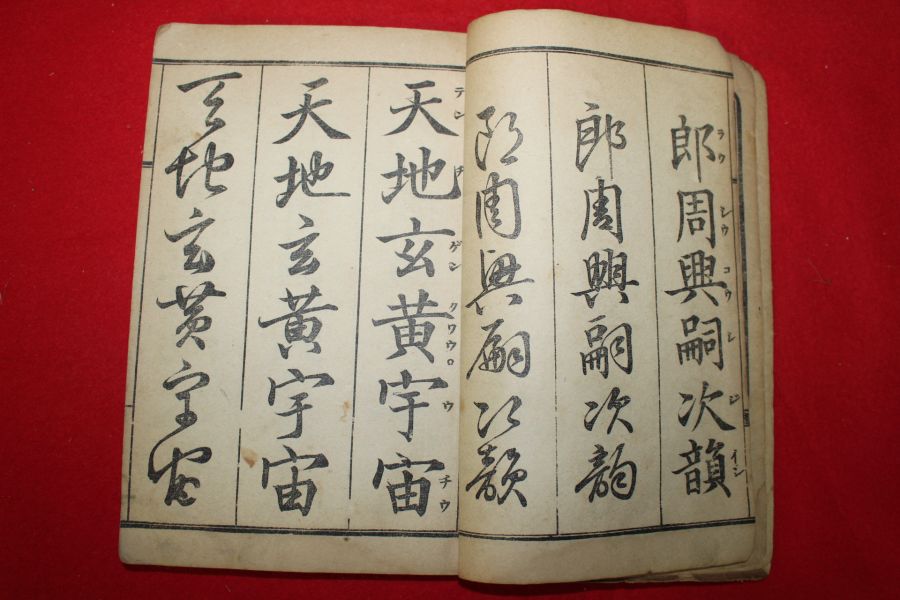 郎周興嗣次韻
ラウ シウ コウ シ ジ イン
郎周興嗣次韵
郎周興嗣次韻
天地玄黄宇宙
テン チ ゲン クワウ ウ チウ
天地玄黄宇宙
天地玄黄宇宙